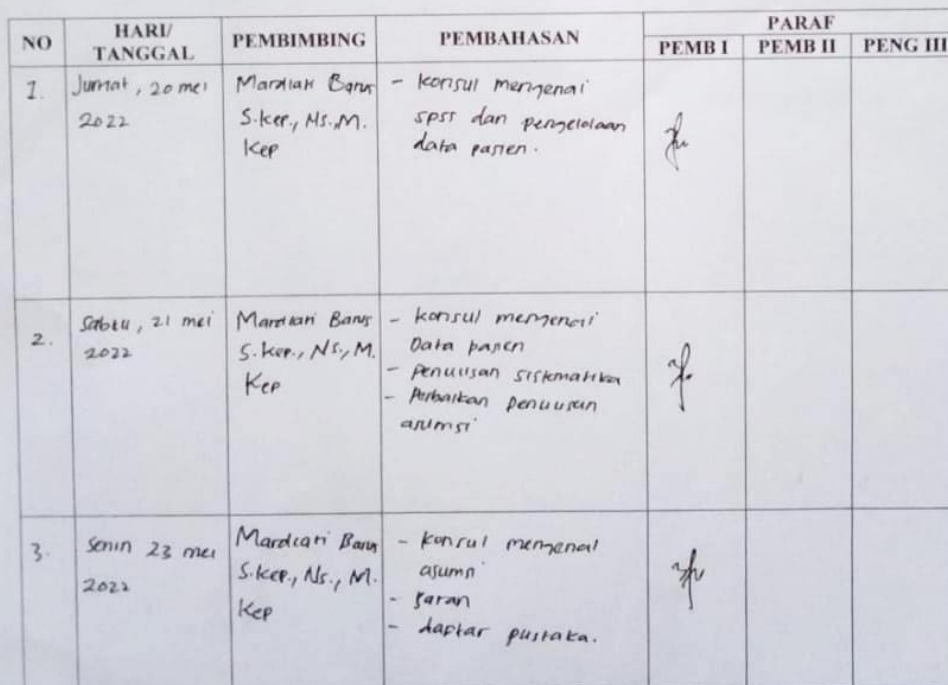 NO HARI/ TANGGAL PEMBIMBING PEMBAHASAN PARAF
PEMB I PEMB II PENG III
1. Jumat, 20 mei 2022
Mardiati Barus S.kep., Ns., M. Kep
- konsul mengenai
spss dan pengelolaan
data pasien.
2. Sabtu, 21 mei 2022
Mardiati Barus S.kep., Ns., M. Kep
- konsul mengenai
Data pasien
- penulisan sistematika
- Perbaikan penulisan
asumsi
3. Senin 23 mei 2022
Mardiati Barus S.kep., Ns., M. Kep
- konsul mengenai
asumsi
- saran
- daftar pustaka.